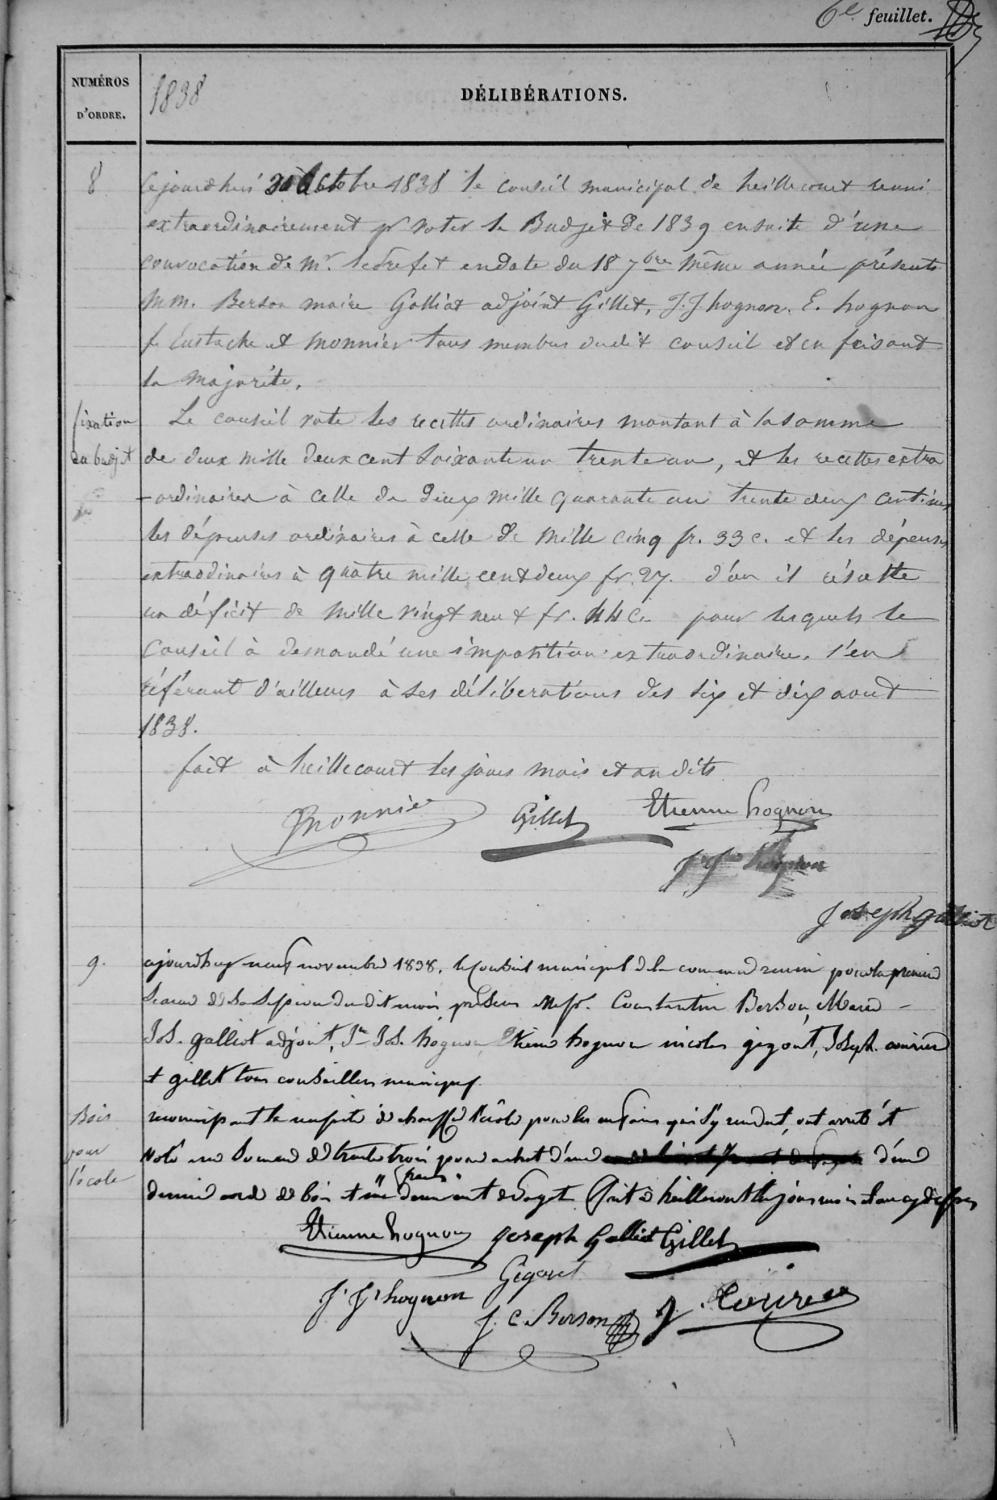 6e feuillet.
NUMÉROS
D'ORDRE.
1838
DÉLIBÉRATIONS.
8
Cejourd'hui 20 Octobre 1838 le conseil municipal de heillecourt reuni
extraordinairement pr voter le Budjet de 1839 ensuite d'une
convocation de Mr. le préfet en date du 18 7bre même année présents
MM. Berson maire Galliot adjoint Gillet, J. J hognon. E. hognon
f. Eustache et Monnier tous membres dudit conseil et en faisant
la majorité.
fixation
du budjet
Le conseil vote les recettes ordinaires montant à la somme
de deux mille deux cent soixante un trente un, et les recettes extra
-ordinaires à celle de deux mille quarante un trente deux centimes
les dépenses ordinaires à celle de mille cinq fr. 33 c. et les dépenses
extraodinaires à quatre mille cent deux fr. 27. d'ou il résulte
un déficit de mille vingt neuf fr. 44 c. pour lesquels le
Conseil à demandé une imposition extraordinaire. s'en
référant d'ailleurs à ses déliberations des six et dix aout
1838.
fait à heillecourt les jours mois et an dits
Monnier Gillet Etienne hognon
J J hognon
Joseph galliot
9.
ajourdhuy neuf novembre 1838. le Conseil municipal de la commune reuni pour la premiere
seance de la session du dit mois présens Messr. Constantin Berson, Maire
Jos. galliot adjoint, Jn Jos. hognon Etiene hognon nicolas gigout, Joseph
et gillet tous conseillers municipaux.
Bois
pour
l'école
l'école pour les enfans qui s'y rendent, ont arreté et
voté une somme de trente trois pour achat d'une d'une
francs
demie corde de bois et fait à heillecourt les jours mois et an
Etienne hognon Joseph Galliot Gillet
Gigout
J. J hognon
J. C. Berson J.